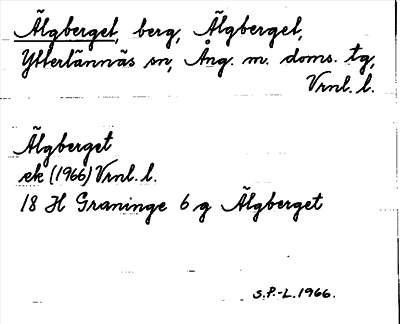 Älgberget, berg, Älgberget,
Ytterlännäs sn, Ång. m. doms. tg,
Vrnl. l.
Älgberget
ek (1966) Vrnl. l.
18 H Graninge 6 g Älgberget
S.P.-L. 1966.